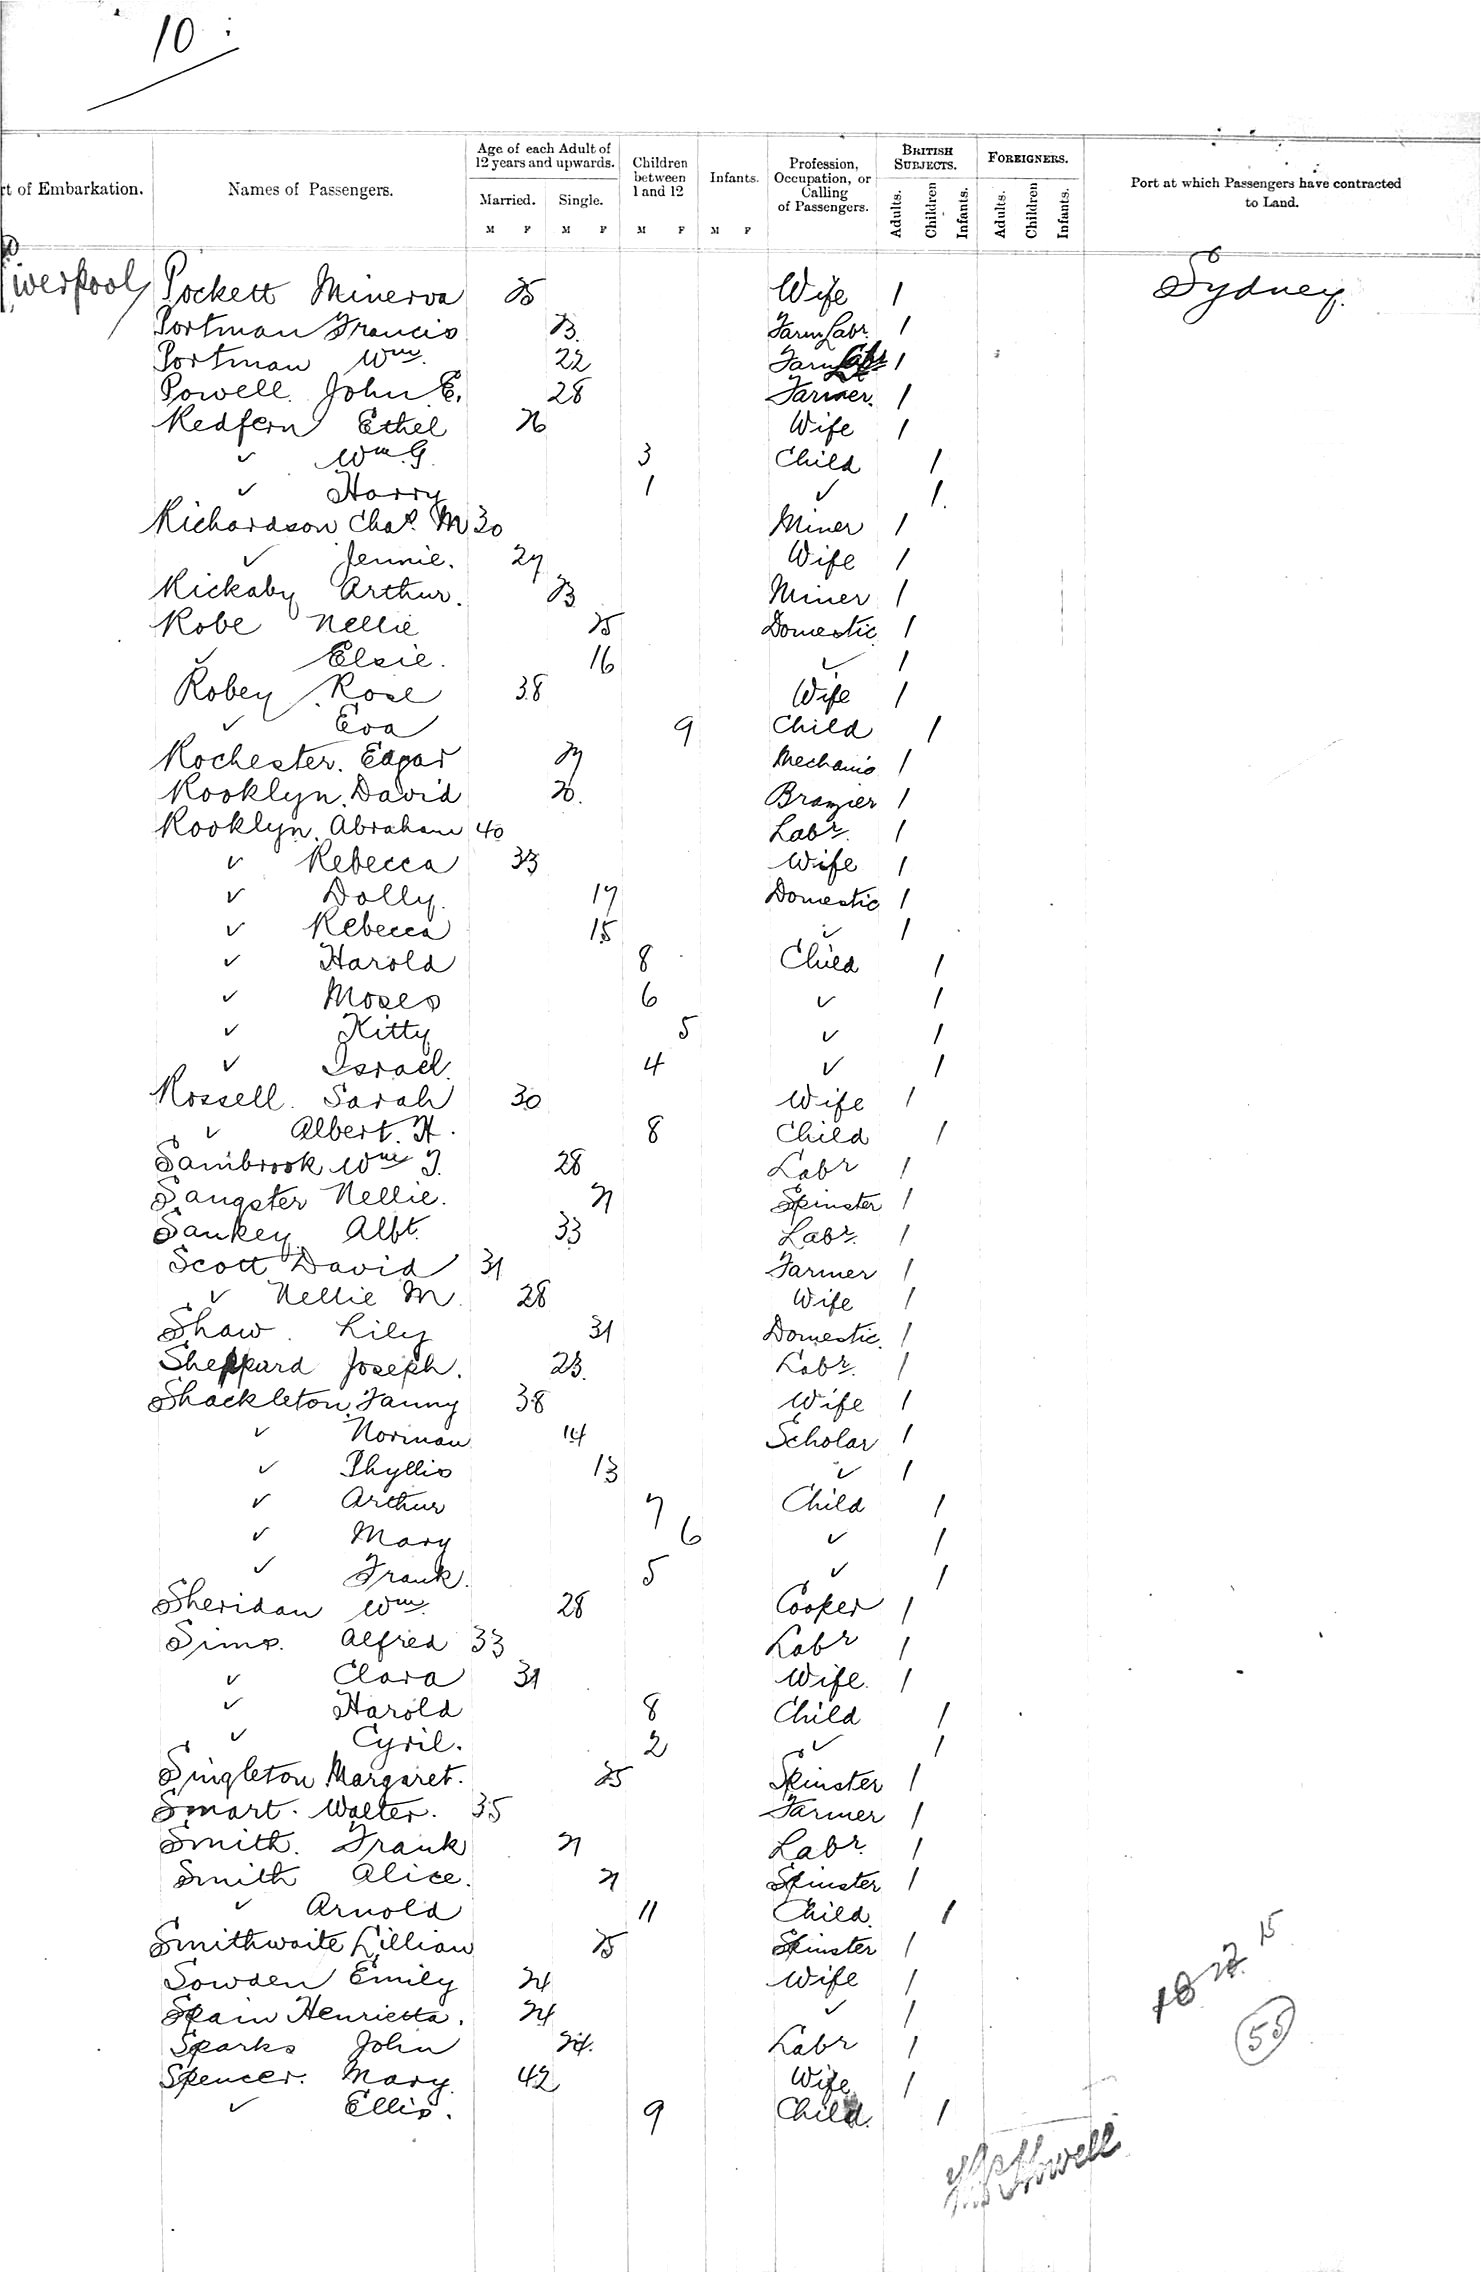 10 :
rt of Embarkation. Names of Passengers. Age of each Adult of 12 years and upwards. Children between 1 and 12 Infants. Profession, Occupation, or Calling of Passengers. BRITISH SUBJECTS. FOREIGNERS. Port at which Passengers have contracted to Land.
Married. Single. Adults. Children Infants. Adults. Children Infants.
M F M F M F M F
Liverpool Pockett Minerva 25 Wife 1 Sydney.
Portman Francis 23 Farm Labr. 1
Portman Wm. 22 Farm Labr 1
Powell. John E. 28 Farmer. 1
Redfern Ethel 26 Wife 1
✓ Wm. G. 3 Child 1
✓ Harry 1 ✓ 1
Richardson Chas. M 30 Miner 1
✓ Jennie. 27 Wife 1
Rickaby Arthur. 23 Miner 1
Robe Nellie 25 Domestic 1
✓ Elsie. 16 ✓ 1
Robey Rose 38 Wife 1
✓ Eva 9 Child 1
Rochester. Edgar 27 Mechanic 1
Rooklyn. David 20. Brazier 1
Rooklyn. Abraham 40 Labr. 1
✓ Rebecca 33 Wife 1
✓ Dolly. 17 Domestic 1
✓ Rebecca 15 ✓ 1
✓ Harold 8 Child 1
✓ Moses 6 ✓ 1
✓ Kitty 5 ✓ 1
✓ Israel. 4 ✓ 1
Rossell. Sarah 30 Wife 1
✓ Albert. H. 8 Child 1
Sambrook Wm J. 28 Labr 1
Sangster Nellie. 21 Spinster 1
Sankey Albt. 33 Labr. 1
Scott David 31 Farmer 1
✓ Nellie M. 28 Wife 1
Shaw. Lily 31 Domestic. 1
Sheppard Joseph. 23. Labr. 1
Shackleton. Fanny 38 Wife 1
✓ Norman 14 Scholar 1
✓ Phyllis 13 ✓ 1
✓ Arthur 7 Child 1
✓ Mary 6 ✓ 1
✓ Frank. 5 ✓ 1
Sheridan Wm. 28 Cooper 1
Sims. Alfred 33 Labr 1
✓ Clara 31 Wife. 1
✓ Harold 8 Child 1
✓ Cyril. 2 ✓ 1
Singleton Margaret. 25 Spinster 1
Smart. Walter. 35 Farmer 1
Smith. Frank 21 Labr. 1
Smith Alice. 21 Spinster 1
✓ Arnold 11 Child. 1
Smithwaite Lillian 25 Spinster 1
Sowden Emily 24 Wife 1
Spain Henrietta. 24 ✓ 1
Sparks John 24. Labr 1
Spencer. Mary 42 Wife 1
✓ Ellis. 9 Child. 1
18 22 15
55